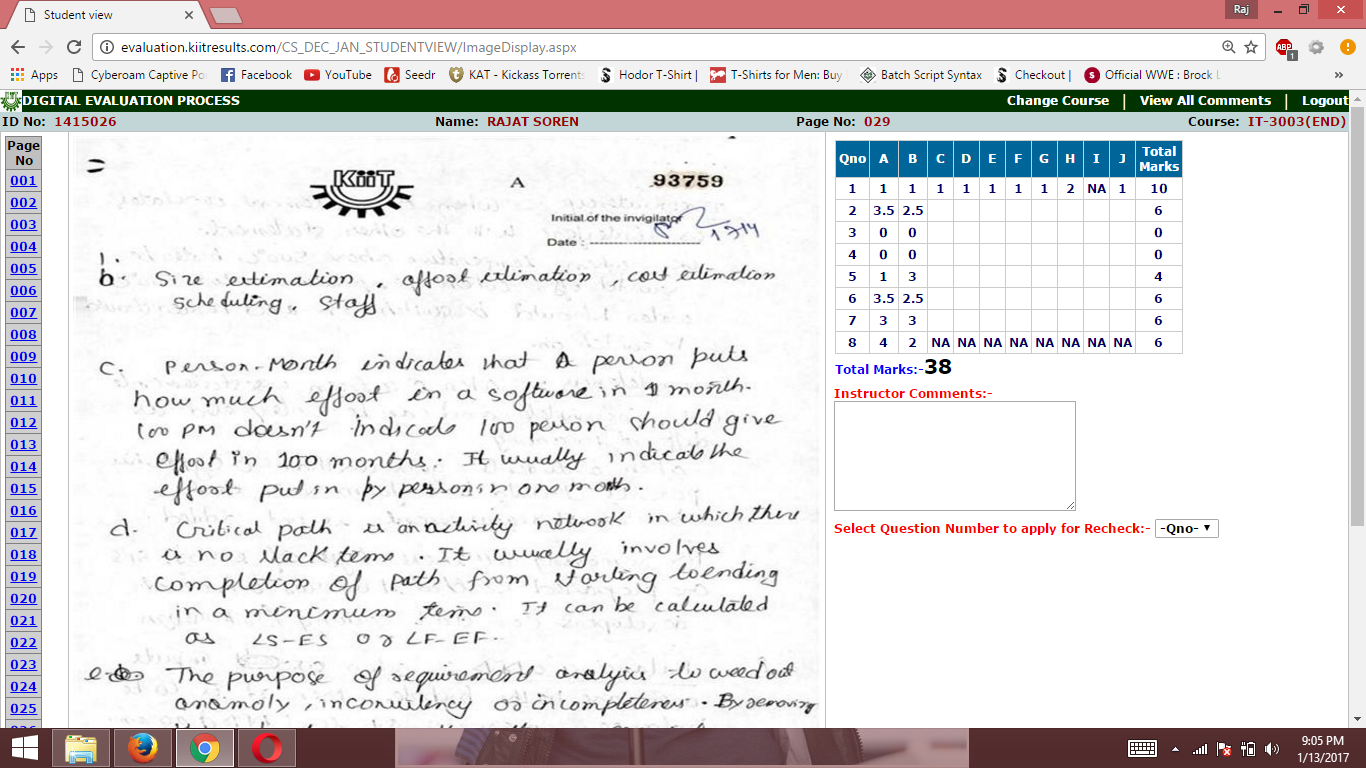 Student view
Raj
evaluation.kiitresults.com/CS_DEC_JAN_STUDENTVIEW/ImageDisplay.aspx
ABP
1
Apps
Cyberoam Captive Po
Facebook
YouTube
Seedr
KAT - Kickass Torrents
Hodor T-Shirt |
T-Shirts for Men: Buy
Batch Script Syntax
Checkout |
Official WWE : Brock L
»
DIGITAL EVALUATION PROCESS
Change Course | View All Comments | Logout
ID No: 1415026
Name: RAJAT SOREN
Page No: 029
Course: IT-3003(END)
Page No
001
002
003
004
005
006
007
008
009
010
011
012
013
014
015
016
017
018
019
020
021
022
023
024
025
KiiT
A
93759
Initial of the invigilator
Date :
1.
b. Size estimation, effort estimation, cost estimation
scheduling, staff
c. Person-Month indicates that A person puts
how much effort in a software in 1 month.
100 PM doesn't indicate 100 person should give
effort in 100 months. It usually indicats the
effort put in by person in one month.
d. Critical path is an activity network in which there
is no slack tems. It usually involves
completion of path from starting to ending
in a minimum tems. It can be calculated
as LS-ES or LF-EF.
e. The purpose of requirement analysis to weed out
anamoly, inconsistency or incompleteness. By removing
Qno A B C D E F G H I J Total Marks
1 1 1 1 1 1 1 1 2 NA 1 10
2 3.5 2.5 6
3 0 0 0
4 0 0 0
5 1 3 4
6 3.5 2.5 6
7 3 3 6
8 4 2 NA NA NA NA NA NA NA NA 6
Total Marks:-38
Instructor Comments:-
Select Question Number to apply for Recheck:- -Qno-
9:05 PM
1/13/2017